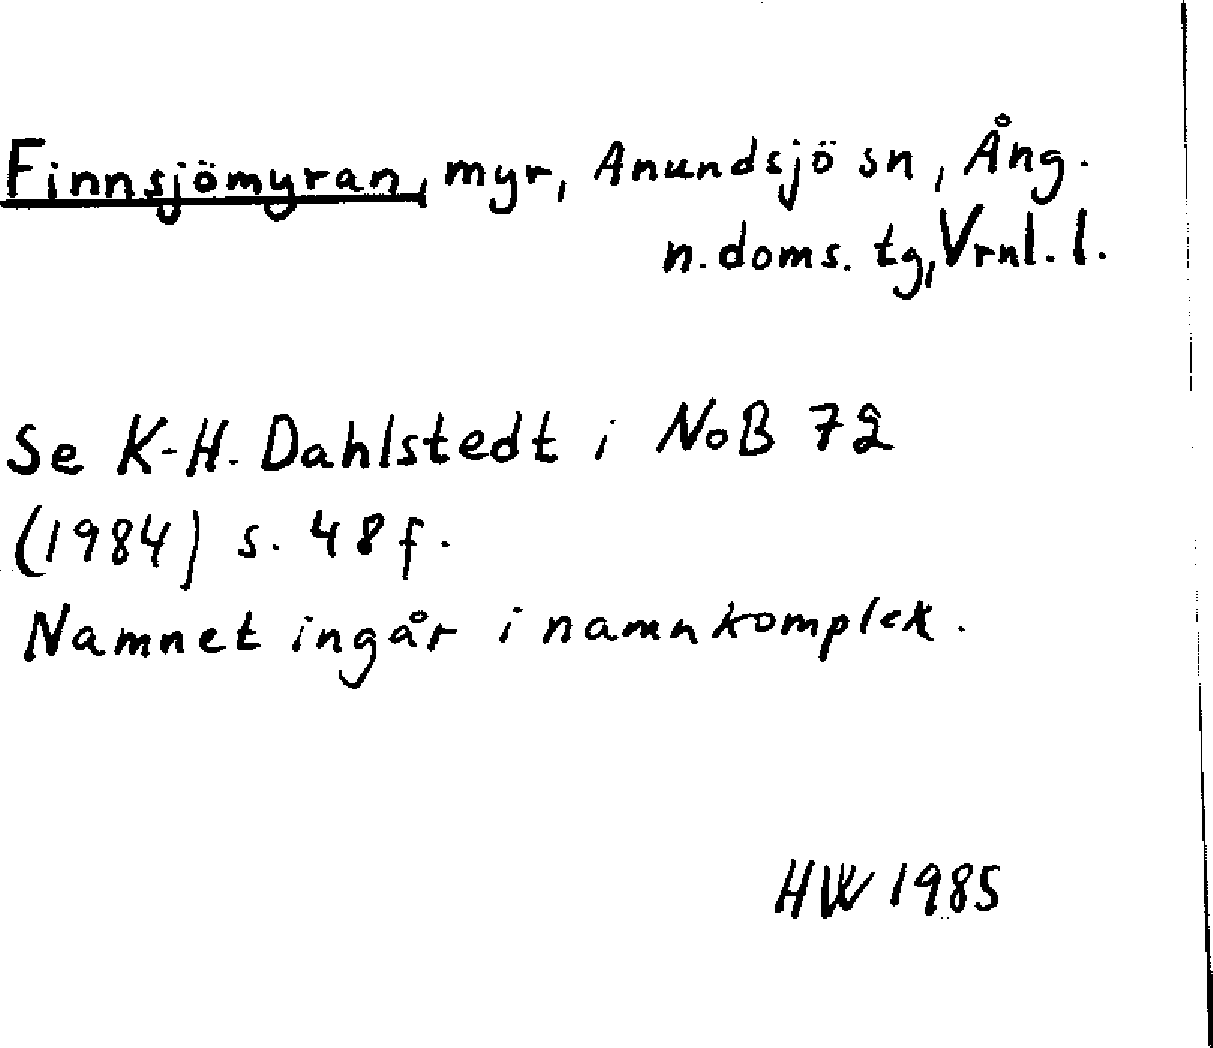 Finnsjömyran, myr, Anundsjö sn, Ång.
n. doms. tg, Vrnl. l.
Se K-H. Dahlstedt i NoB 72
(1984) s. 48 f.
Namnet ingår i namnkomplex.
HW 1985